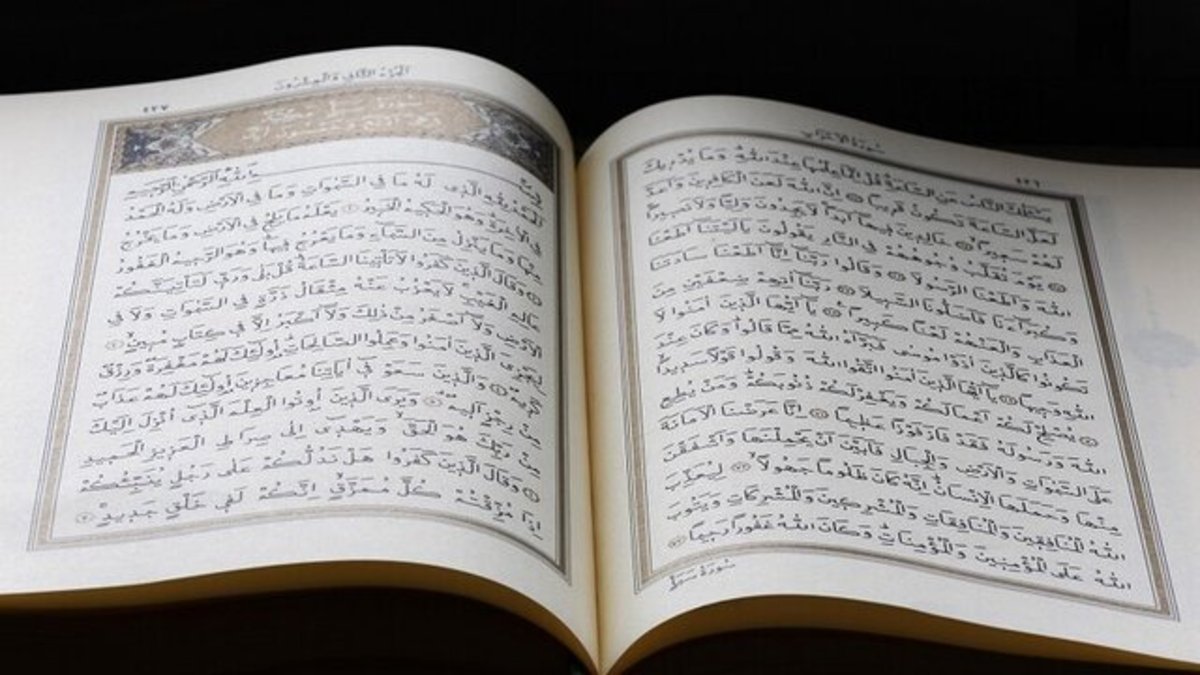 سُورَةُ الْاَحْزَابِ
٤٢٦
يَسْـَٔلُكَ النَّاسُ عَنِ السَّاعَةِ قُلْ اِنَّمَا عِلْمُهَا عِنْدَ اللّٰهِ وَمَا يُدْرِيكَ
لَعَلَّ السَّاعَةَ تَكُونُ قَرِيبًا ٦٣ اِنَّ اللّٰهَ لَعَنَ الْكَافِرِينَ وَاَعَدَّ
لَهُمْ سَعِيرًا ٦٤ خَالِدِينَ فِيهَا اَبَدًا لَا يَجِدُونَ وَلِيًّا وَلَا نَصِيرًا
٦٥ يَوْمَ تُقَلَّبُ وُجُوهُهُمْ فِي النَّارِ يَقُولُونَ يَا لَيْتَنَا اَطَعْنَا
اللّٰهَ وَاَطَعْنَا الرَّسُولَا ٦٦ وَقَالُوا رَبَّنَا اِنَّا اَطَعْنَا سَادَتَنَا
وَكُبَرَاءَنَا فَاَضَلُّونَا السَّبِيلَا ٦٧ رَبَّنَا اٰتِهِمْ ضِعْفَيْنِ مِنَ
الْعَذَابِ وَالْعَنْهُمْ لَعْنًا كَبِيرًا ٦٨ يَا اَيُّهَا الَّذِينَ اٰمَنُوا لَا
تَكُونُوا كَالَّذِينَ اٰذَوْا مُوسٰى فَبَرَّاَهُ اللّٰهُ مِمَّا قَالُوا وَكَانَ عِنْدَ
اللّٰهِ وَجِيهًا ٦٩ يَا اَيُّهَا الَّذِينَ اٰمَنُوا اتَّقُوا اللّٰهَ وَقُولُوا قَوْلًا سَدِيدًا
٧٠ يُصْلِحْ لَكُمْ اَعْمَالَكُمْ وَيَغْفِرْ لَكُمْ ذُنُوبَكُمْ وَمَنْ يُطِعِ
اللّٰهَ وَرَسُولَهُ فَقَدْ فَازَ فَوْزًا عَظِيمًا ٧١ اِنَّا عَرَضْنَا الْاَمَانَةَ
عَلَى السَّمٰوَاتِ وَالْاَرْضِ وَالْجِبَالِ فَاَبَيْنَ اَنْ يَحْمِلْنَهَا وَاَشْفَقْنَ
مِنْهَا وَحَمَلَهَا الْاِنْسَانُ اِنَّهُ كَانَ ظَلُومًا جَهُولًا ٧٢ لِيُعَذِّبَ
اللّٰهُ الْمُنَافِقِينَ وَالْمُنَافِقَاتِ وَالْمُشْرِكِينَ وَالْمُشْرِكَاتِ وَيَتُوبَ
اللّٰهُ عَلَى الْمُؤْمِنِينَ وَالْمُؤْمِنَاتِ وَكَانَ اللّٰهُ غَفُورًا رَحِيمًا ٧٣
سُورَةُ سَبَأٍ
اَلْجُزْءُ الثَّانِي وَالْعِشْرُونَ
٤٢٧
سُورَةُ سَبَأٍ مَكِّيَّةٌ
بِسْمِ اللّٰهِ الرَّحْمٰنِ الرَّحِيمِ
اَلْحَمْدُ لِلّٰهِ الَّذِي لَهُ مَا فِي السَّمٰوَاتِ وَمَا فِي الْاَرْضِ وَلَهُ الْحَمْدُ
فِي الْاٰخِرَةِ وَهُوَ الْحَكِيمُ الْخَبِيرُ ١ يَعْلَمُ مَا يَلِجُ فِي الْاَرْضِ وَمَا يَخْرُجُ
مِنْهَا وَمَا يَنْزِلُ مِنَ السَّمَاءِ وَمَا يَعْرُجُ فِيهَا وَهُوَ الرَّحِيمُ الْغَفُورُ
٢ وَقَالَ الَّذِينَ كَفَرُوا لَا تَأْتِينَا السَّاعَةُ قُلْ بَلٰى وَرَبِّي لَتَأْتِيَنَّكُمْ
عَالِمِ الْغَيْبِ لَا يَعْزُبُ عَنْهُ مِثْقَالُ ذَرَّةٍ فِي السَّمٰوَاتِ وَلَا فِي
الْاَرْضِ وَلَا اَصْغَرُ مِنْ ذٰلِكَ وَلَا اَكْبَرُ اِلَّا فِي كِتَابٍ مُبِينٍ ٣
لِيَجْزِيَ الَّذِينَ اٰمَنُوا وَعَمِلُوا الصَّالِحَاتِ اُولٰئِكَ لَهُمْ مَغْفِرَةٌ وَرِزْقٌ
كَرِيمٌ ٤ وَالَّذِينَ سَعَوْ فِي اٰيَاتِنَا مُعَاجِزِينَ اُولٰئِكَ لَهُمْ عَذَابٌ
مِنْ رِجْزٍ اَلِيمٌ ٥ وَيَرَى الَّذِينَ اُوتُوا الْعِلْمَ الَّذِي اُنْزِلَ اِلَيْكَ
مِنْ رَبِّكَ هُوَ الْحَقَّ وَيَهْدِي اِلٰى صِرَاطِ الْعَزِيزِ الْحَمِيدِ
٦ وَقَالَ الَّذِينَ كَفَرُوا هَلْ نَدُلُّكُمْ عَلٰى رَجُلٍ يُنَبِّئُكُمْ
اِذَا مُزِّقْتُمْ كُلَّ مُمَزَّقٍ اِنَّكُمْ لَفِي خَلْقٍ جَدِيدٍ ٧